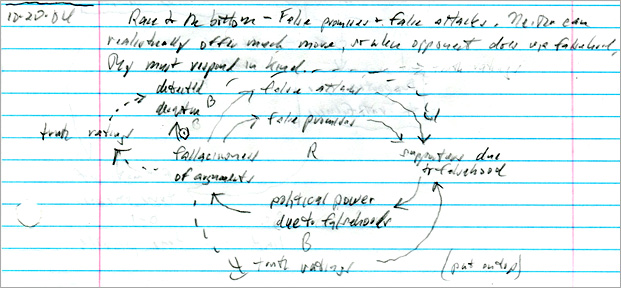 10-20-04
Race to the bottom - False promises & false attacks. Neither can
realistically offer much more, so when opponent does via falsehood,
they must respond in kind.
detected
deception
B
false attacks
truth ratings
B
false promises
fallaciousness
of arguments
R
supporters due
to falsehood
political power
due to falsehoods
B
truth ratings
(put on top)